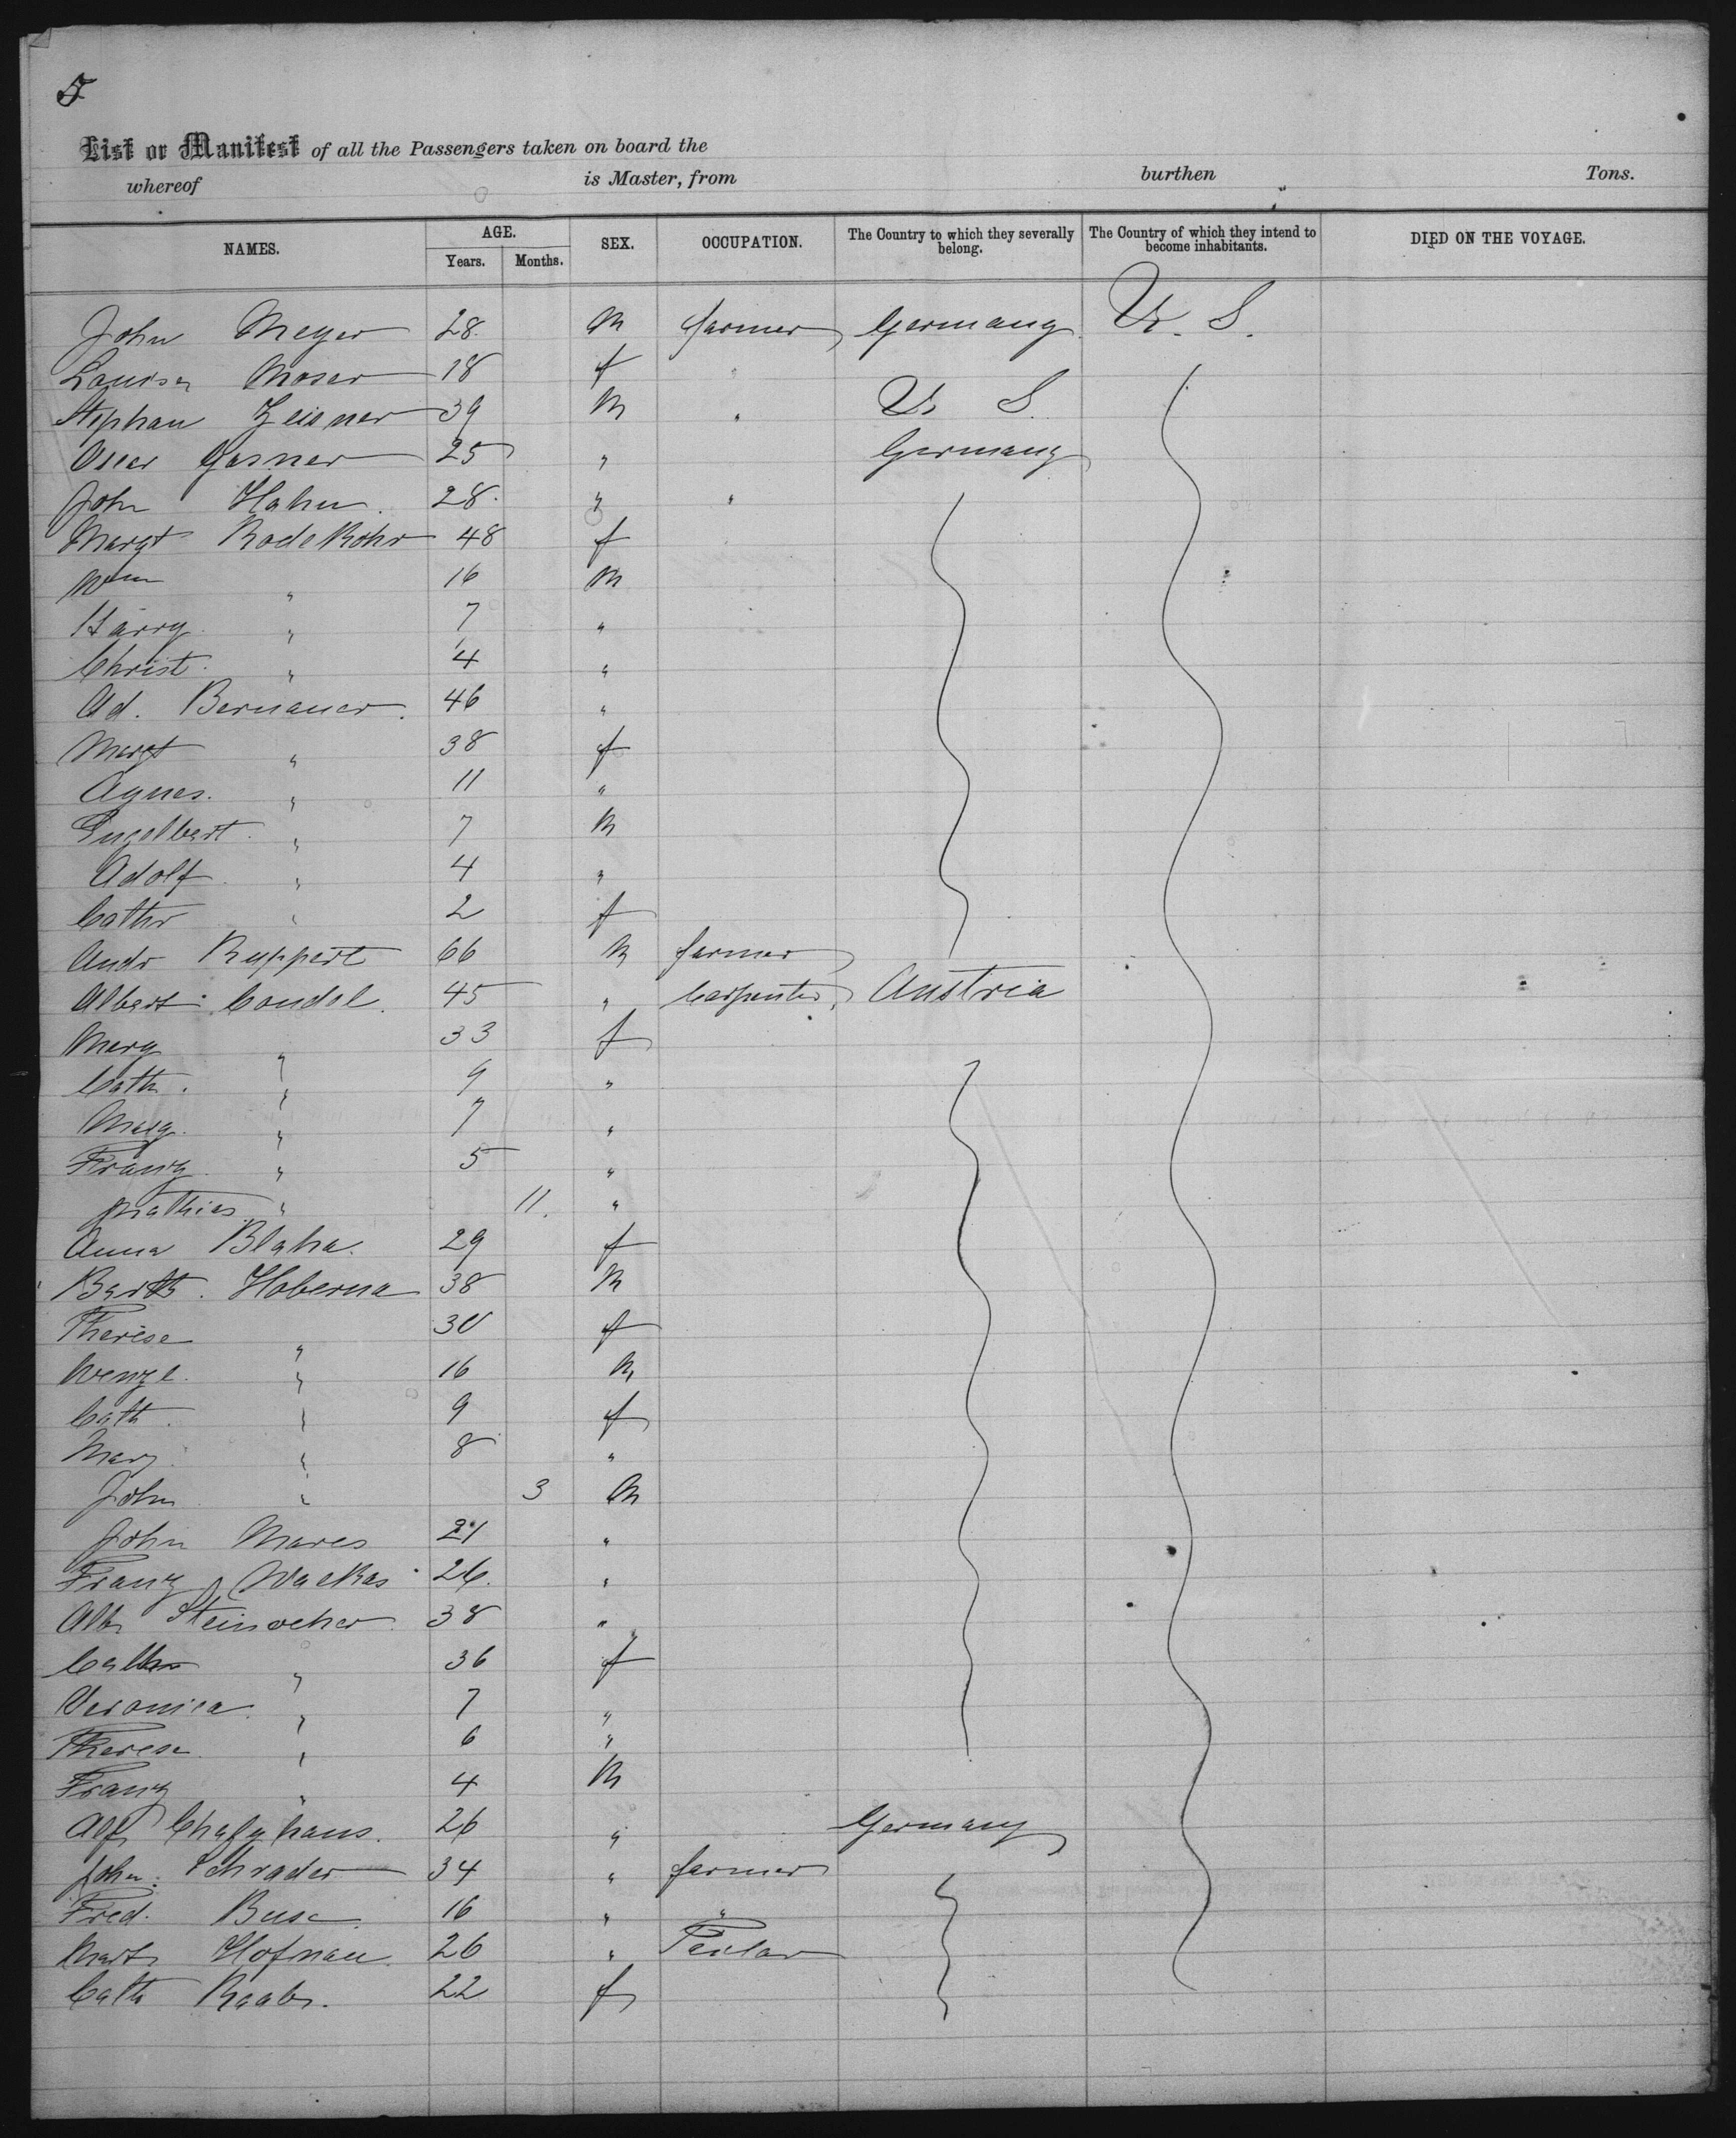 5
List or Manifest of all the Passengers taken on board the
whereof is Master, from burthen Tons.
NAMES. AGE. Years. Months. SEX. OCCUPATION. The Country to which they severally belong. The Country of which they intend to become inhabitants. DIED ON THE VOYAGE.
John Meyer 28. M farmer Germany U. S.
Louisa Moser 18 f "
Stephan Zeisner 39 M " U S
Oscar Gasner 25 " Germany
John Hahn. 28. " "
Margt Rodekohr 48 f
Wm " 16 M
Harry " 7 "
Christ. " 4 "
Ad. Bernauer. 46 "
Margt " 38 f
Agnes. " 11 "
Engelbert. " 7 M
Adolf. " 4 "
Cathr " 2 f
Andr Ruppert 66 M farmer
Albert Condol. 45 " Carpenter, Austria
Marg " 33 f
Cath. " 9 "
Marg. " 7 "
Franz " 5 "
Mathias " 11. "
Anna Blaha. 29 f
Barth. Hoberna 38 M
Therese " 30 f
Wenzl. " 16 M
Cath. " 9 f
Mary. " 8 "
John " 3 M
John Mares 21 "
Franz Wackas 26. "
Alb. 38 "
Cathr " 36 f
Veronica. " 7 "
Therese " 6 "
Franz " 4 M
Alf. 26 " Germany
John. Schrader 34 " farmer
Fred. Buse. 16 " "
Mart. Hofnau. 26 "
Cath Raab. 22 f